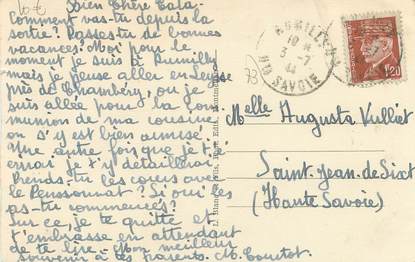 Bien Chère Lala,
Comment vas-tu depuis la
sortie? Passes-tu de bonnes
vacances? Moi pour le
moment je suis à Rumilly
mais je pense aller en Leysse
près de Chambéry, ou je
suis allée pour la com
munion de ma cousine
on s'y est bien amusé.
Une autre fois que je t'é
crirai je t'y détaillerai
Prends-tu les cours avec
le Pensionnat? Si oui les
as-tu commencés?
Sur ce je te quitte et
t'embrasse en attendant
de te lire. Mon meilleur
souvenir à tes parents. M.
RUMILLY
3-7
44
Hte SAVOIE
1,20
73
Melle Augusta Vulliet
Saint-Jean-de-Sixt
(Haute Savoie)